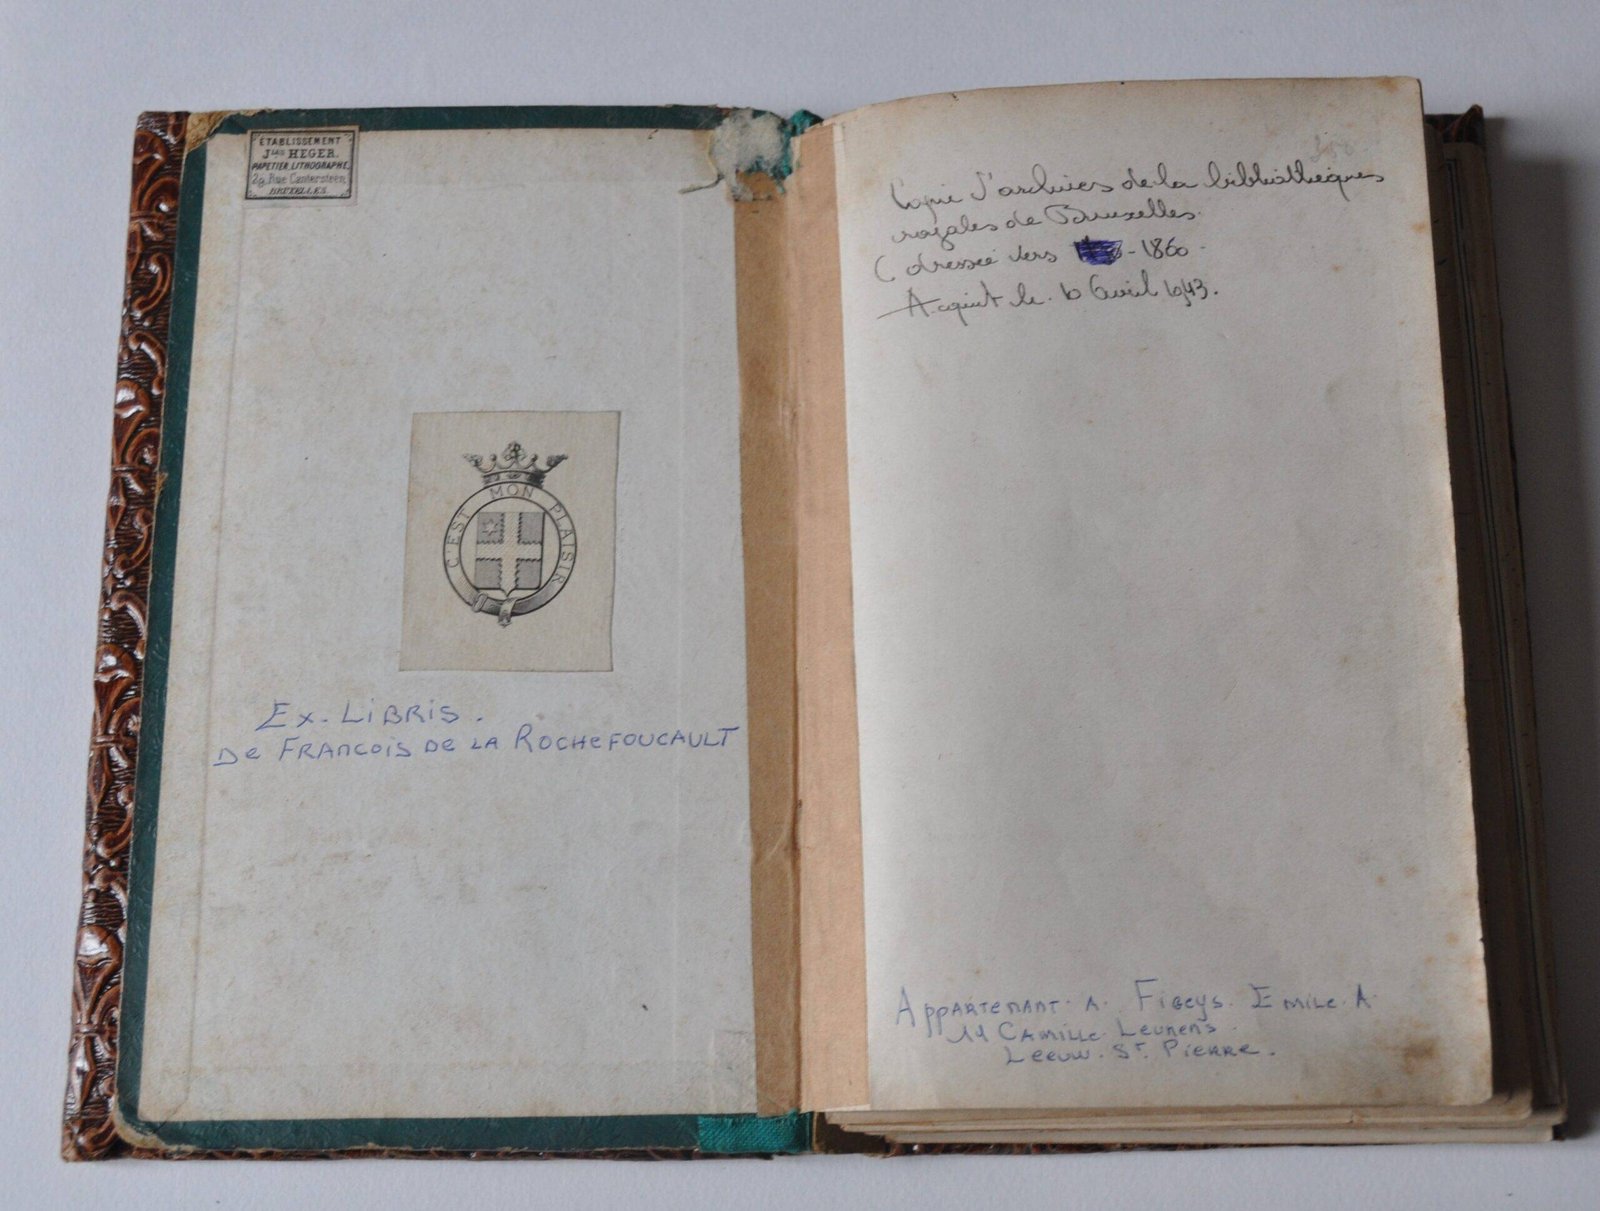 ETABLISSEMENT
Jques HEGER.
PAPETIER. LITHOGRAPHE.
29, Rue Cantersteen,
BRUXELLES.
C'EST MON PLAISIR
Ex-LiBRiS.
De FRANCOIS DE LA ROCHEFOUCAULT
Copie d'archives de la bibliothèques
royales de Bruxelles.
( dressée vers - 1860 -
Acquit le 10 Avril 1943.
APPARTENANT. A. Figeys. EMiLe. A.
CAMILLe. LeuNenS.
Leeuw. ST. PierRe.